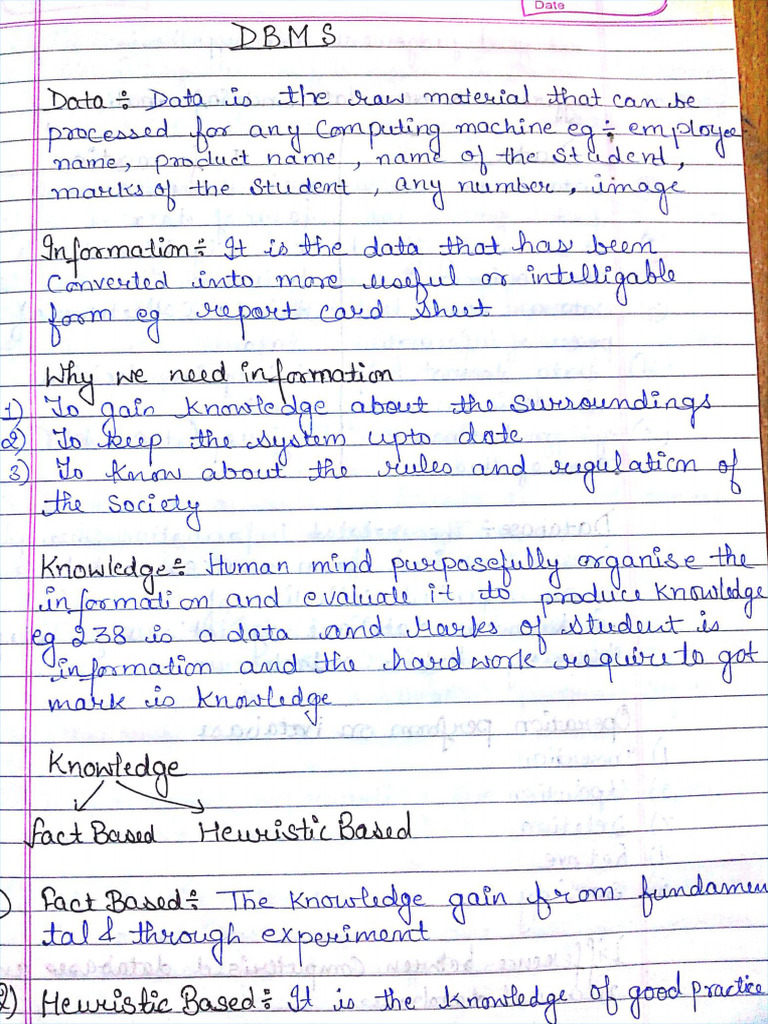 Date
DBMS
Data ÷ Data is the raw material that can be
processed for any Computing machine eg ÷ employee
name, product name, name of the Student,
marks of the Student, any number, image
Information ÷ It is the data that has been
Converted into more useful or intelligable
form eg report card sheet
Why we need information
1) To gain knowledge about the surroundings
2) To keep the system upto date
3) To know about the rules and regulation of
the Society
Knowledge ÷ Human mind purposefully organise the
information and evaluate it to produce knowledge
eg 238 is a data and Marks of student is
information and the hardwork require to got
mark is knowledge
Knowledge
fact Based Heuristic Based
) fact Based ÷ The knowledge gain from fundamen
tal & through experiment
2) Heuristic Based ÷ It is the knowledge of good practice